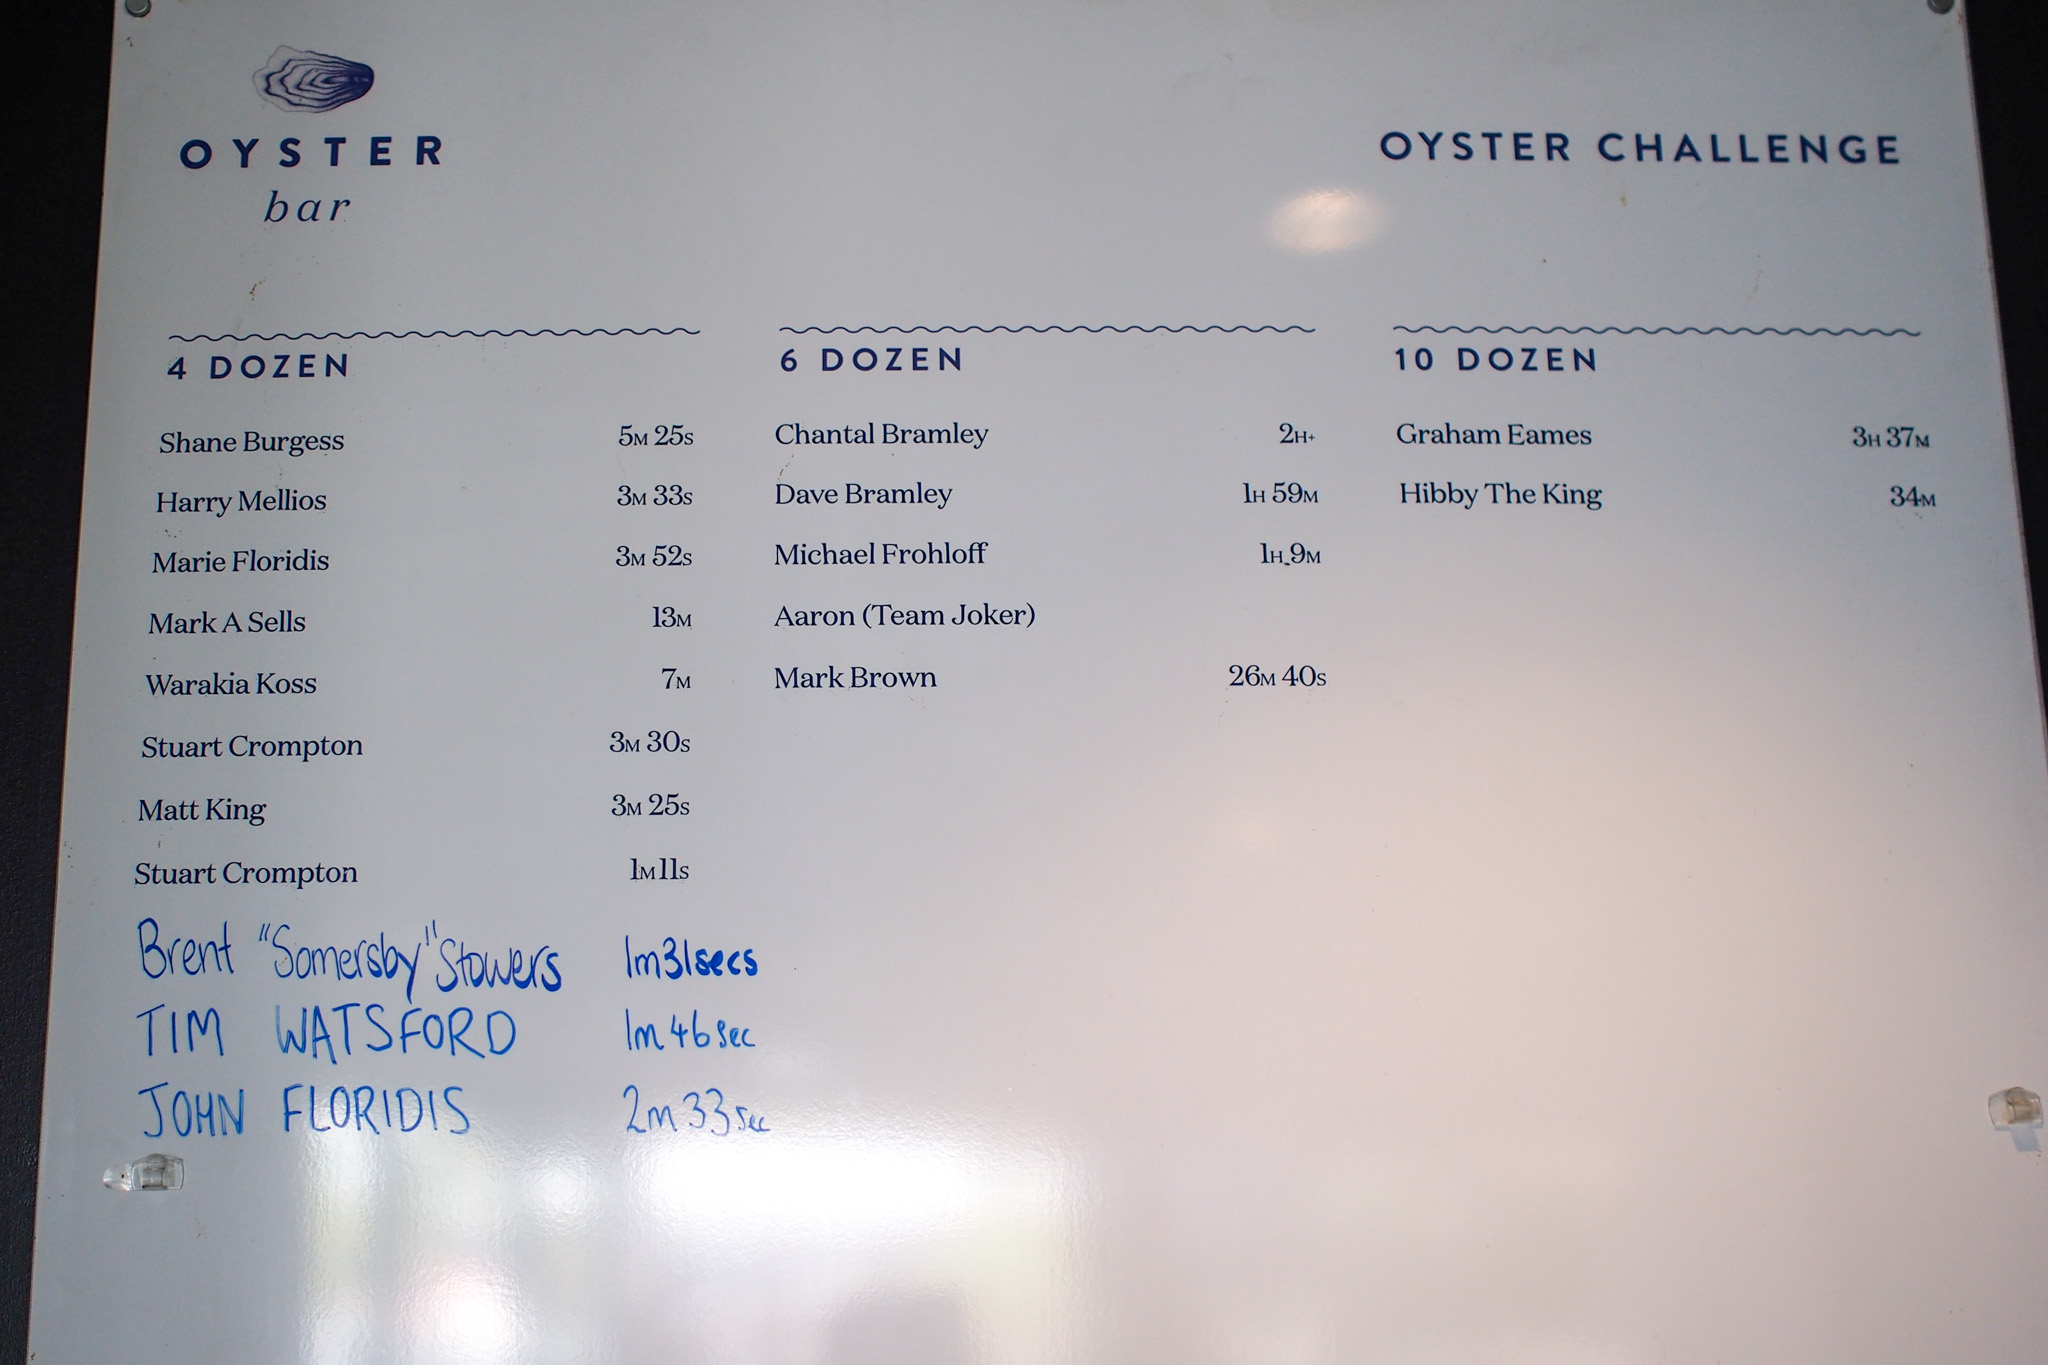 OYSTER
bar
OYSTER CHALLENGE
4 DOZEN
Shane Burgess 5M 25S
Harry Mellios 3M 33S
Marie Floridis 3M 52S
Mark A Sells 13M
Warakia Koss 7M
Stuart Crompton 3M 30S
Matt King 3M 25S
Stuart Crompton 1M 11S
Brent "Somersby" Stowers 1m31secs
TIM WATSFORD 1m 46sec
JOHN FLORIDIS 2m 33sec
6 DOZEN
Chantal Bramley 2H+
Dave Bramley 1H 59M
Michael Frohloff 1H 9M
Aaron (Team Joker)
Mark Brown 26M 40S
10 DOZEN
Graham Eames 3H 37M
Hibby The King 34M